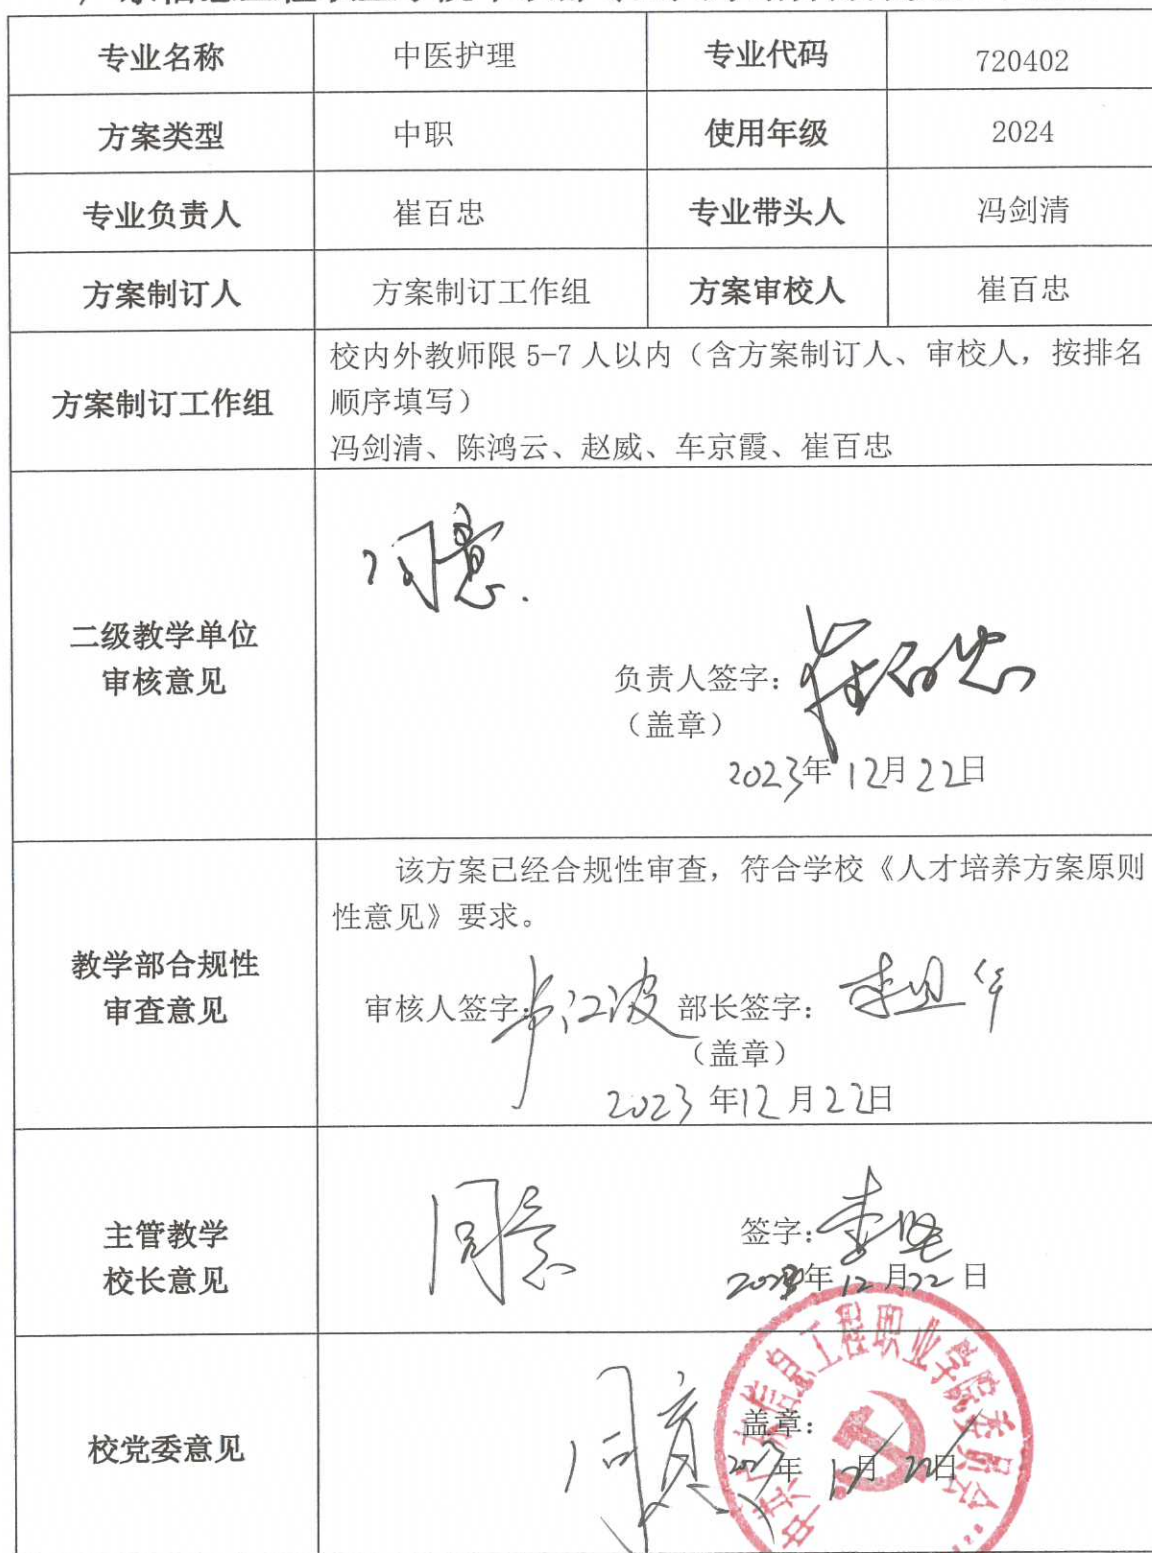 专业名称 中医护理 专业代码 720402
方案类型 中职 使用年级 2024
专业负责人 崔百忠 专业带头人 冯剑清
方案制订人 方案制订工作组 方案审校人 崔百忠
方案制订工作组
校内外教师限 5-7 人以内（含方案制订人、审校人，按排名
顺序填写）
冯剑清、陈鸿云、赵威、车京霞、崔百忠
二级教学单位
审核意见
同意.
负责人签字：崔百忠
（盖章）
2023年12月22日
教学部合规性
审查意见
该方案已经合规性审查，符合学校《人才培养方案原则
性意见》要求。
审核人签字： 部长签字：
（盖章）
2023年12月22日
主管教学
校长意见
同意
签字：
2023年12月22日
校党委意见
同意
盖章：
2023年12月22日
信息工程职业学院委员会